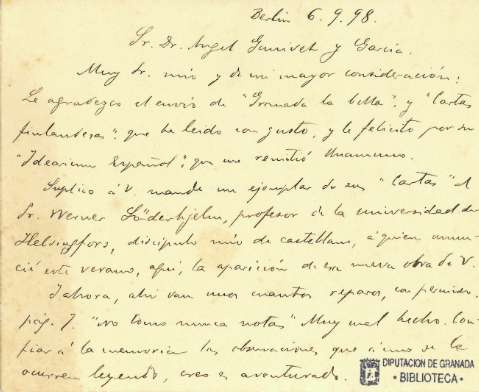 Berlin 6.9.98.
Sr. Dr. Angel Ganivet y Garcia.
Muy Sr. mio y de mi mayor consideración:
Le agradezco el envío de "Granada la bella" y "Cartas
finlandesas", que he leido con gusto, y le felicito por su
"Idearium Español", que me remitió Unamuno.
Suplico á V. mande un ejemplar de sus "Cartas" al
Sr. Werner Söderhjelm, profesor de la universidad de
Helsingfors, discípulo mio de castellano, á quien anun-
cié este verano, aquí, la aparición de esa nueva obra de V.
Y ahora, ahí van unos cuantos reparos, con permiso.
pág. 7. "No tomo nunca notas" Muy mal hecho. Con-
fiar á la memoria las observaciones que á uno se le
ocurren leyendo, es aventurado.
DIPUTACION DE GRANADA
• BIBLIOTECA •